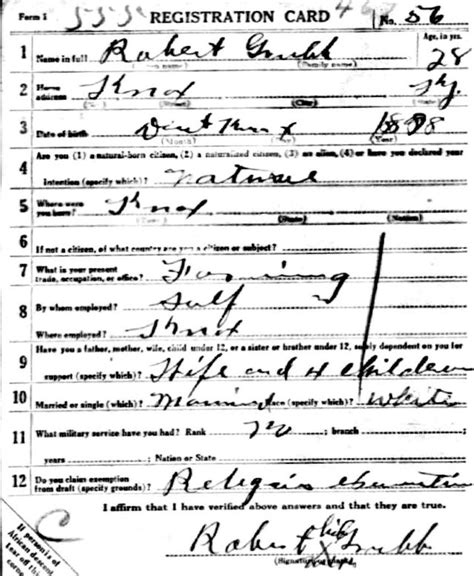 Form 1 555 REGISTRATION CARD No. 56
1 Name in full Robert Grubb Age, in yrs. 28
(Family name)
2 Home address Knox Ky
3 Date of birth Dont Know 1888
(Month) (Year)
Are you (1) a natural-born citizen, (2) a naturalized citizen, (3) an alien, (4) or have you declared your
4 intention (specify which)? Natural
5 Where were you born? Knox
(State) (Nation)
6 If not a citizen, of what country are you a citizen or subject?
7 What is your present trade, occupation, or office? Farming
8 By whom employed? Self
Where employed? Knox
9 Have you a father, mother, wife, child under 12, or a sister or brother under 12, solely dependent on you for
support (specify which)? Wife and 4 children
10 Married or single (which)? Married Race (specify which)? White
11 What military service have you had? Rank no branch
years Nation or State
12 Do you claim exemption from draft (specify grounds)?
I affirm that I have verified above answers and that they are true.
Robert his x Grubb
If person is of
African descent
tear off this